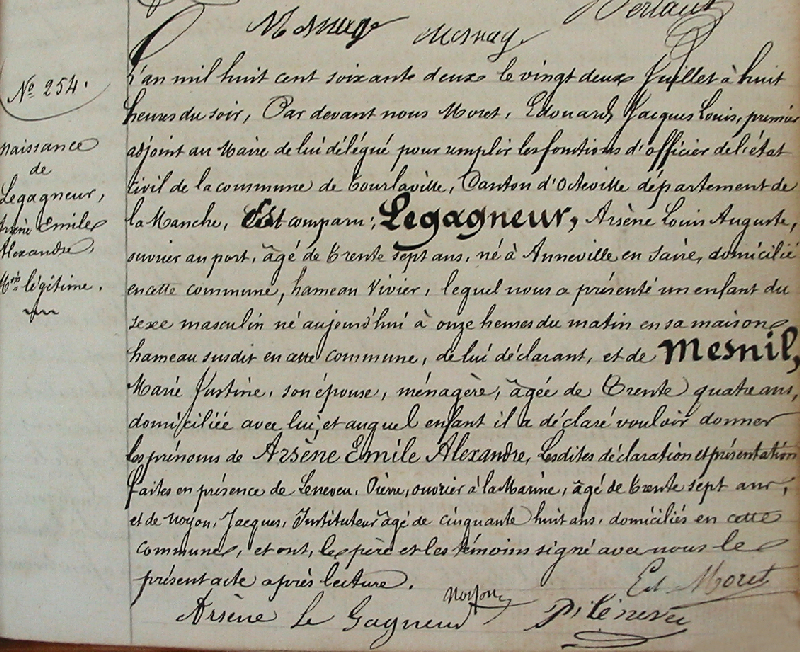 Nº 254.
naissance
de
Legagneur,
Arsène Emile
Alexandre.
légitime.
L'an mil huit cent soixante deux le vingt deux Juillet à huit
heures du soir, Par devant nous Moret, Edouard, Jacques Louis, premier
adjoint au Maire de lui délégué pour remplir les fonctions d'officier de l'état
Civil de la commune de Tourlaville, Canton d'Octeville département de
la Manche, Est comparu: Legagneur, Arsène Louis Auguste,
ouvrier au port, âgé de Trente sept ans, né à Anneville en Saire, domicilié
en cette commune, hameau Vivier, lequel nous a présenté un enfant du
sexe masculin né aujourd'hui à onze heures du matin en sa maison
hameau susdit en cette commune, de lui déclarant, et de Mesnil,
Marie Justine, son épouse, ménagère, âgée de Trente quatre ans,
domiciliée avec lui, et auquel enfant il a déclaré vouloir donner
les prénoms de Arsène Emile Alexandre, Lesdites déclaration et présentation
faites en présence de Leneveu, Pierre, ouvrier à la Marine, âgé de Trente sept ans,
et de Noyon, Jacques, Instituteur âgé de cinquante huit ans, domiciliés en cette
commune, et ont, le père et les témoins signé avec nous le
présent acte après lecture.
Ed. Moret
Arsène Le Gagneur Noyon P. Leneveu